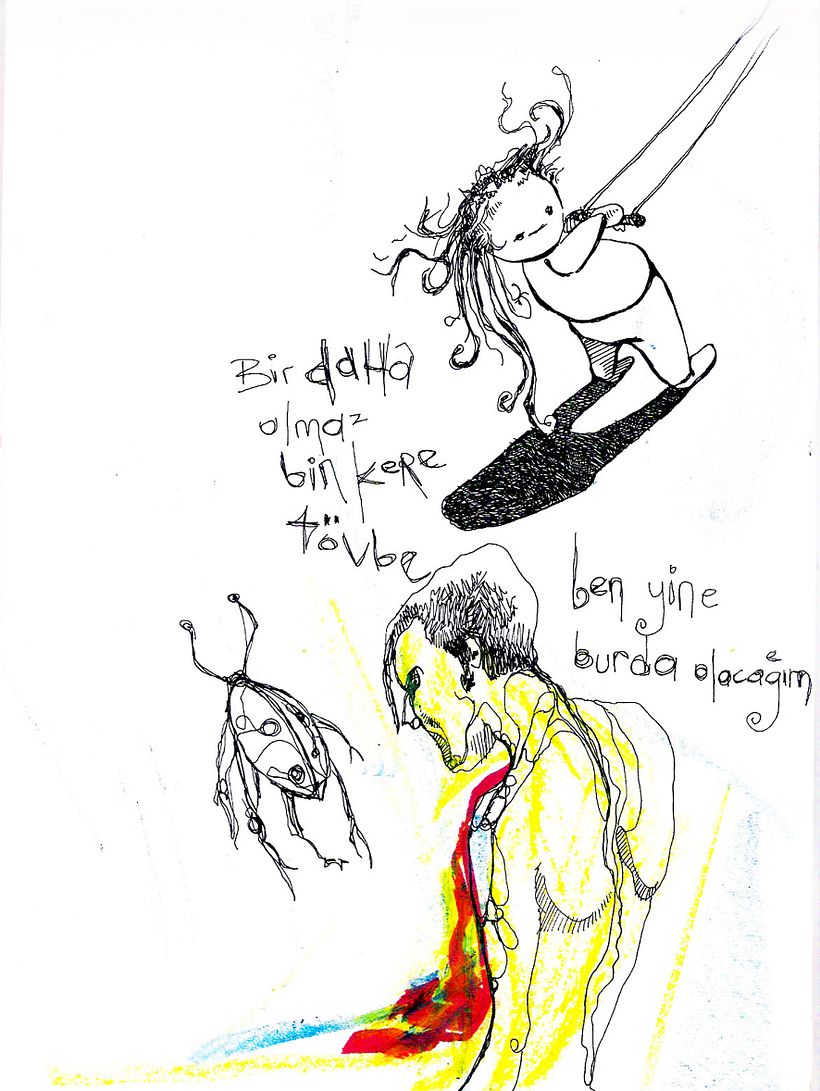 Bir ddHa
olmaz
bin kere
tövbe
ben yine
burda olacağım